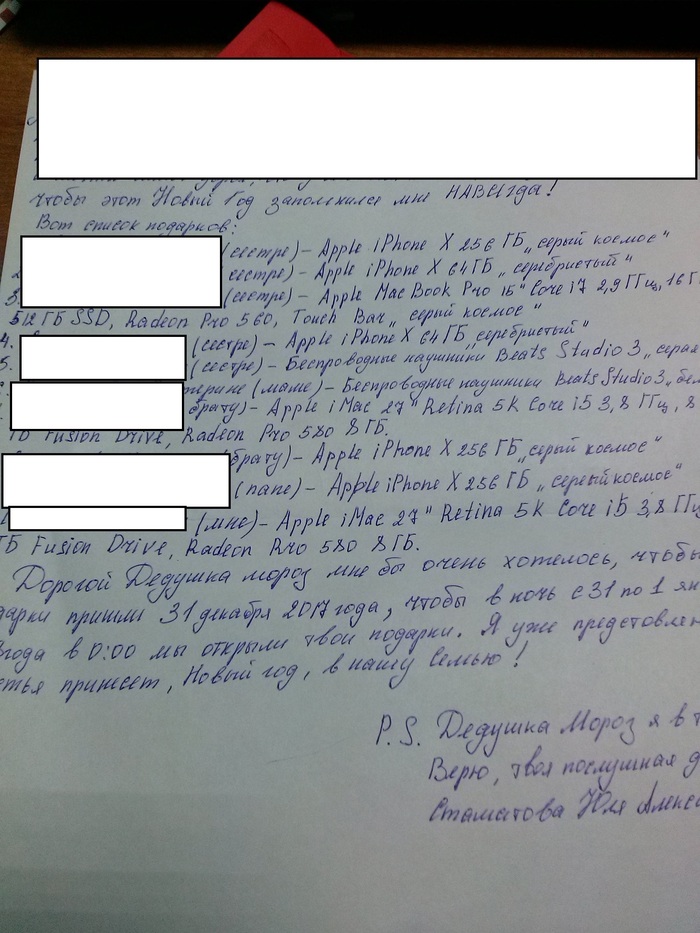 чтобы этот Новый Год запомнился мне НАВСЕГДА!
Вот список подарков:
(сестре) – Apple iPhone X 256 ГБ „серый космос“
2. сестре) – Apple iPhone X 64 ГБ „серебристый“
3. (сестре) – Apple MacBook Pro 15" Core i7 2,9 ГГц, 16 Г
512 ГБ SSD, Radeon Pro 560, Touch Bar „серый космос“
4. (сестре) – Apple iPhone X 64 ГБ „серебристый“
5. (сестре) – Беспроводные наушники Beats Studio 3 „серая
терине (маме) – Беспроводные наушники Beats Studio3 „бел
брату) – Apple iMac 27" Retina 5K Core i5 3,8 ГГц, 8
ГБ Fusion Drive, Radeon Pro 580 8 ГБ.
(брату) – Apple iPhone X 256 ГБ „серый космос“
(папе) – Apple iPhone X 256 ГБ „серый космос“
(мне) – Apple iMac 27" Retina 5K Core i5 3,8 ГГц
ГБ Fusion Drive, Radeon Pro 580 8 ГБ.
Дорогой Дедушка мороз мне бы очень хотелось, чтобы
дарки пришли 31 декабря 2017 года, чтобы в ночь с 31 по 1 ян
года в 0:00 мы открыли твои подарки. Я уже предстовлен
стья принесет, Новый год, в нашу Семью!
P.S. Дедушка Мороз я в т
Верю, твоя послушная д
Стаматова Юля Алекс